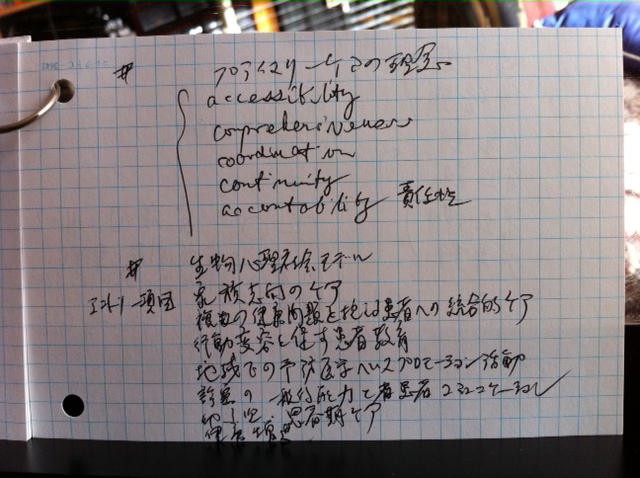 # プライマリーケアの理念
accessibility
comprehensiveness
coordination
continuity
accontability 責任性
# 生物心理社会モデル
エントリー項目 家族志向のケア
複数の健康問題を抱える患者への統合的ケア
行動変容を促す患者教育
地域での予防医学ヘルスプロモーション活動
診療の一般的能力と患者コミュニケーション
思春期ケア